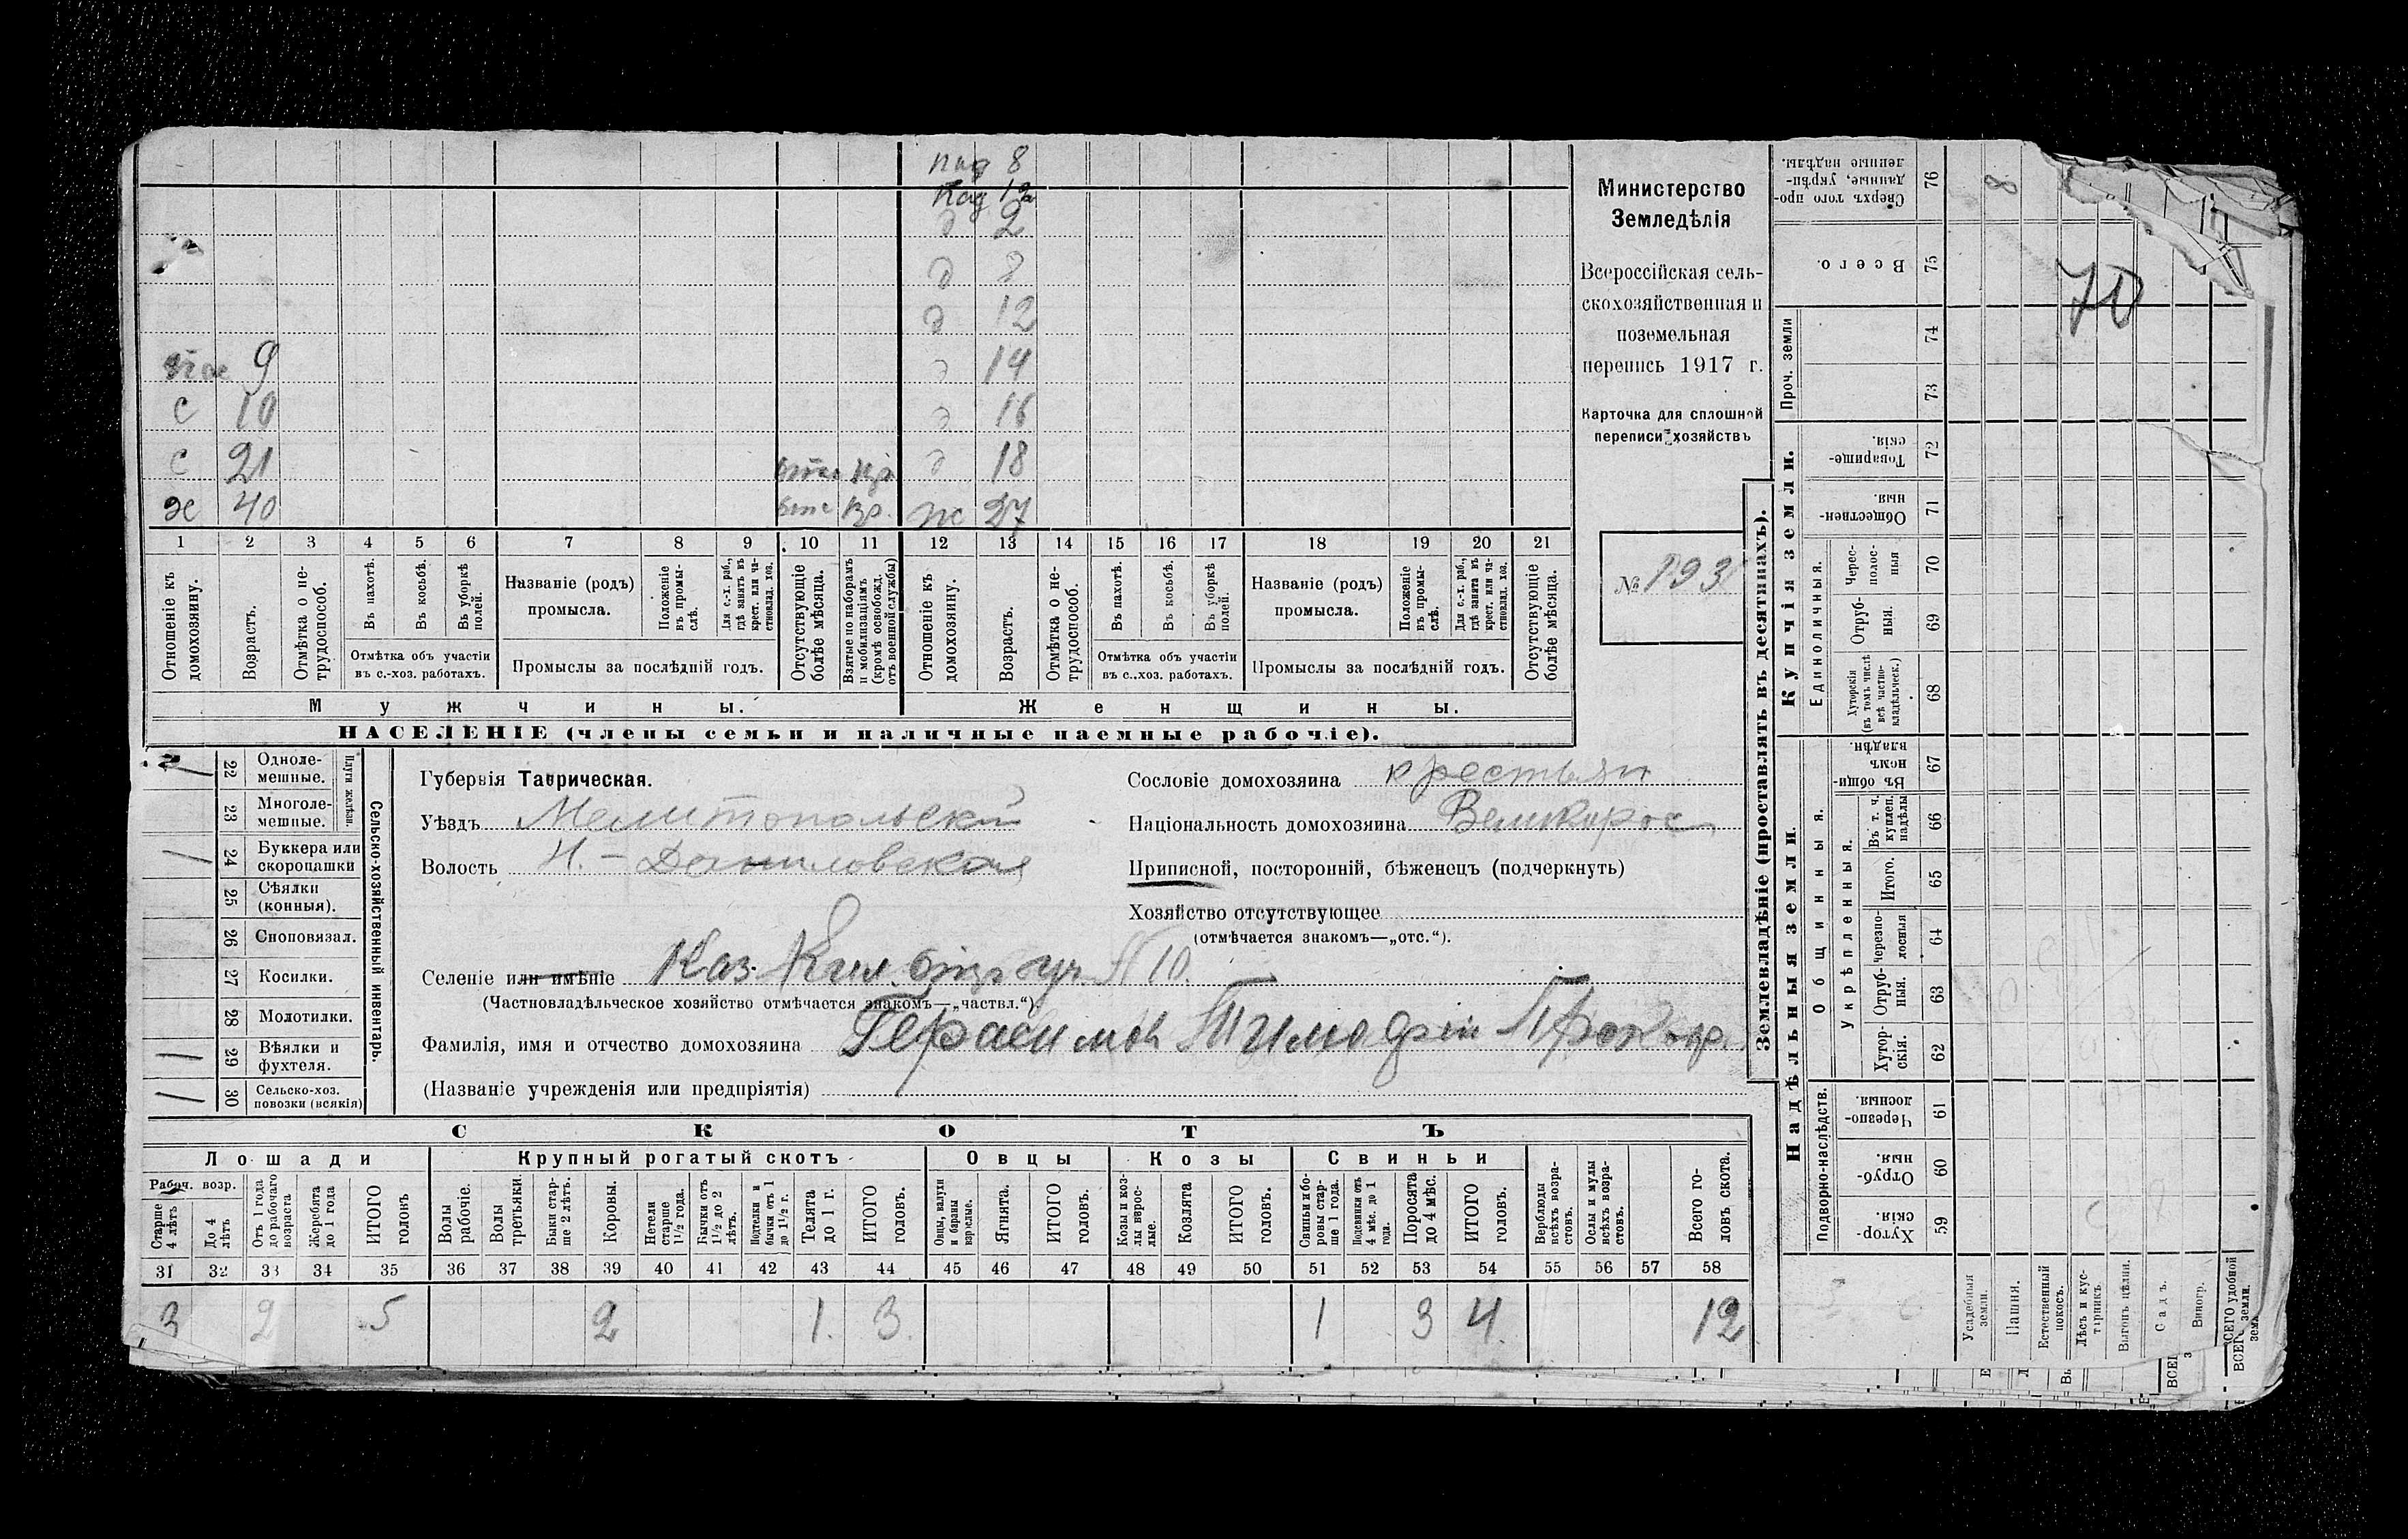 пад 8
Кад 12
д 2
д 8
д 12
9 д 14
с 10 д 16
с 21 д 18
х 40 ж 27
1 2 3 4 5 6 7 8 9 10 11 12 13 14 15 16 17 18 19 20 21
Отношеніе къ домохозяину.
Возрастъ.
Отмѣтка о нетрудоспособ.
Въ пахотѣ.
Въ косьбѣ.
Въ уборкѣ полей.
Отмѣтка объ участіи
въ с.-хоз. работахъ.
Названіе (родъ)
промысла.
Положеніе въ промыслѣ.
Для с.-х. раб., гдѣ занятъ въ крест. или частновлад. хоз.
Промыслы за послѣдній годъ.
Отсутствующіе болѣе мѣсяца.
Взятые по наборамъ и мобилизаціямъ (кромѣ освобожд. отъ военной службы)
Отношеніе къ домохозяину.
Возрастъ.
Отмѣтка о нетрудоспособ.
Въ пахотѣ.
Въ косьбѣ.
Въ уборкѣ полей.
Отмѣтка объ участіи
въ с..хоз. работахъ.
Названіе (родъ)
промысла.
Положеніе въ промыслѣ.
Для с.-х. раб., гдѣ занята въ крест. или частновлад. хоз.
Промыслы за послѣдній годъ.
Отсутствующіе болѣе мѣсяца.
Мужчины.
Женщины.
НАСЕЛЕНІЕ (члены семьи и наличные наемные рабочіе).
Министерство
Земледѣлія
Всероссійская сель-
скохозяйственная и
поземельная
перепись 1917 г.
Карточка для сплошной
переписи хозяйствъ
№ 193
22 Одноле-
мешные.
23 Многоле-
мешные.
Плуги желѣзн.
24 Буккера или
скоропашки
25 Сѣялки
(конныя).
26 Сноповязал.
27 Косилки.
28 Молотилки.
29 Вѣялки и
фухтеля.
30 Сельско-хоз.
повозки (всякія)
Сельско-хозяйственный инвентарь.
Губернія Таврическая.
Уѣздъ Мелитопольскій
Волость Н.-Даниловская
Сословіе домохозяина крестьян
Національность домохозяина Великорос
Приписной, посторонній, бѣженецъ (подчеркнуть)
Хозяйство отсутствующее
(отмѣчается знакомъ—„отс.“).
Селеніе или имѣніе Каз. уч. № 10.
(Частновладѣльческое хозяйство отмѣчается знакомъ—„частвл.“).
Фамилія, имя и отчество домохозяина Герасимов Тимофѣй Прокоф.
(Названіе учрежденія или предпріятія)
СКОТЪ
Лошади
Крупный рогатый скотъ
Овцы
Козы
Свиньи
Рабоч. возр.
Старше 4 лѣтъ
До 4 лѣтъ
Отъ 1 года до рабочаго возраста
Жеребята до 1 года
ИТОГО головъ
Волы рабочіе.
Волы третьяки.
Быки старше 2 лѣтъ.
Коровы.
Нетели старше 1½ года.
Бычки отъ 1½ до 2 лѣтъ.
Подтелки и бычки отъ 1 до 1½ г.
Телята до 1 г.
ИТОГО головъ.
Овцы, валухи и бараны взрослые.
Ягнята.
ИТОГО головъ.
Козы и козлы взрослые.
Козлята
ИТОГО головъ.
Свиньи и боровы старше 1 года.
Подсвинки отъ 4 мѣс. до 1 года.
Поросята до 4 мѣс.
ИТОГО головъ.
Верблюды всѣхъ возрастовъ.
Ослы и мулы всѣхъ возрастовъ.
Всего головъ скота.
31 32 33 34 35 36 37 38 39 40 41 42 43 44 45 46 47 48 49 50 51 52 53 54 55 56 57 58
3 2 5 2 1. 3. 1 3 4. 12
Землевладѣніе (проставлять въ десятинахъ).
Купчія земли.
Надѣльныя земли.
Сверхъ того проданные, укрѣпленные надѣлы. 76 8
Всего. 75
70
Проч. земли
74
73
Товарищескія. 72
Общественныя. 71
Единоличныя.
Чересполосныя 70
Отрубныя. 69
Хуторскія (въ томъ числѣ всѣ частновладѣльческ.) 68
Общинныя.
Въ общинномъ владѣн. 67
Укрѣпленныя.
Въ т. ч. куплен. надѣлы 66
Итого. 65
черезполосныя 64
Отрубныя. 63
Хуторскія. 62
Подворно-наслѣдств.
Черезполосныя 61
Отрубныя. 60
Хуторскія 59
Усадебныя земли.
Пашня.
Естественный покосъ.
Лѣсъ и кустарникъ.
Выгонъ цѣлин.
Садъ.
Виногр.
ВСЕГО удобной земли.